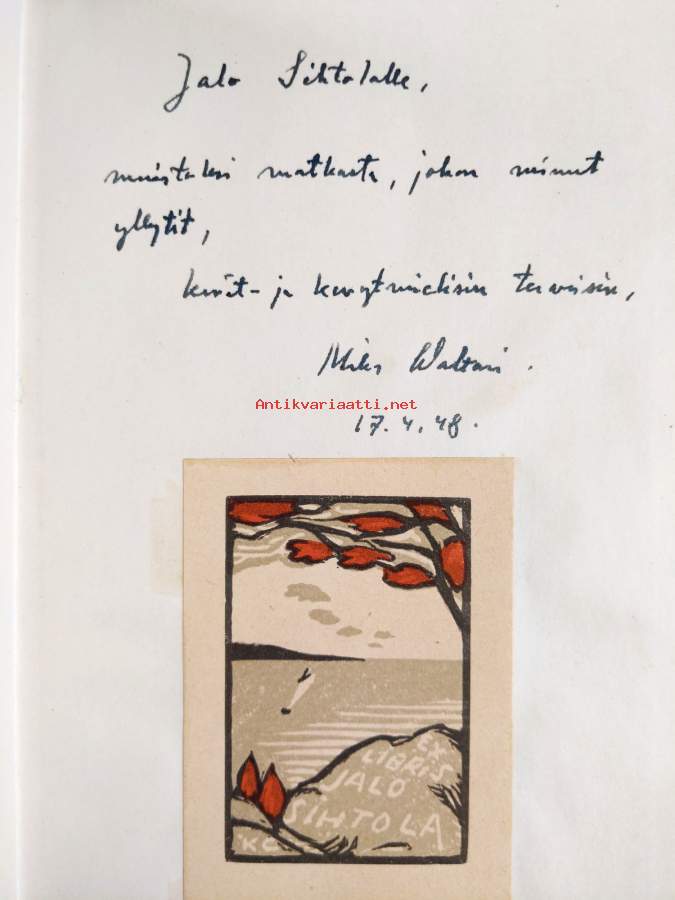 Jalo Sihtolalle,
muistoksi matkasta, johon minut
yllytit,
kevät- ja kevytmielisin terveisin,
Mika Waltari.
Antikvariaatti.net
17.4.48.
EX
LIBRIS
JALO
SIHTOLA
KC